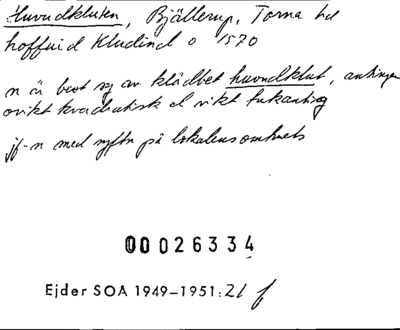 Huvudkluten, Bjällerup, Torna hd
hoffuid Kludind o 1570
n är best sg av klädbet huvudklut, antingen
ovikt kvadratisk el vikt trekantig
jf-n med syftn på lokalens omkrets
00026334
Ejder SOA 1949–1951:21 f